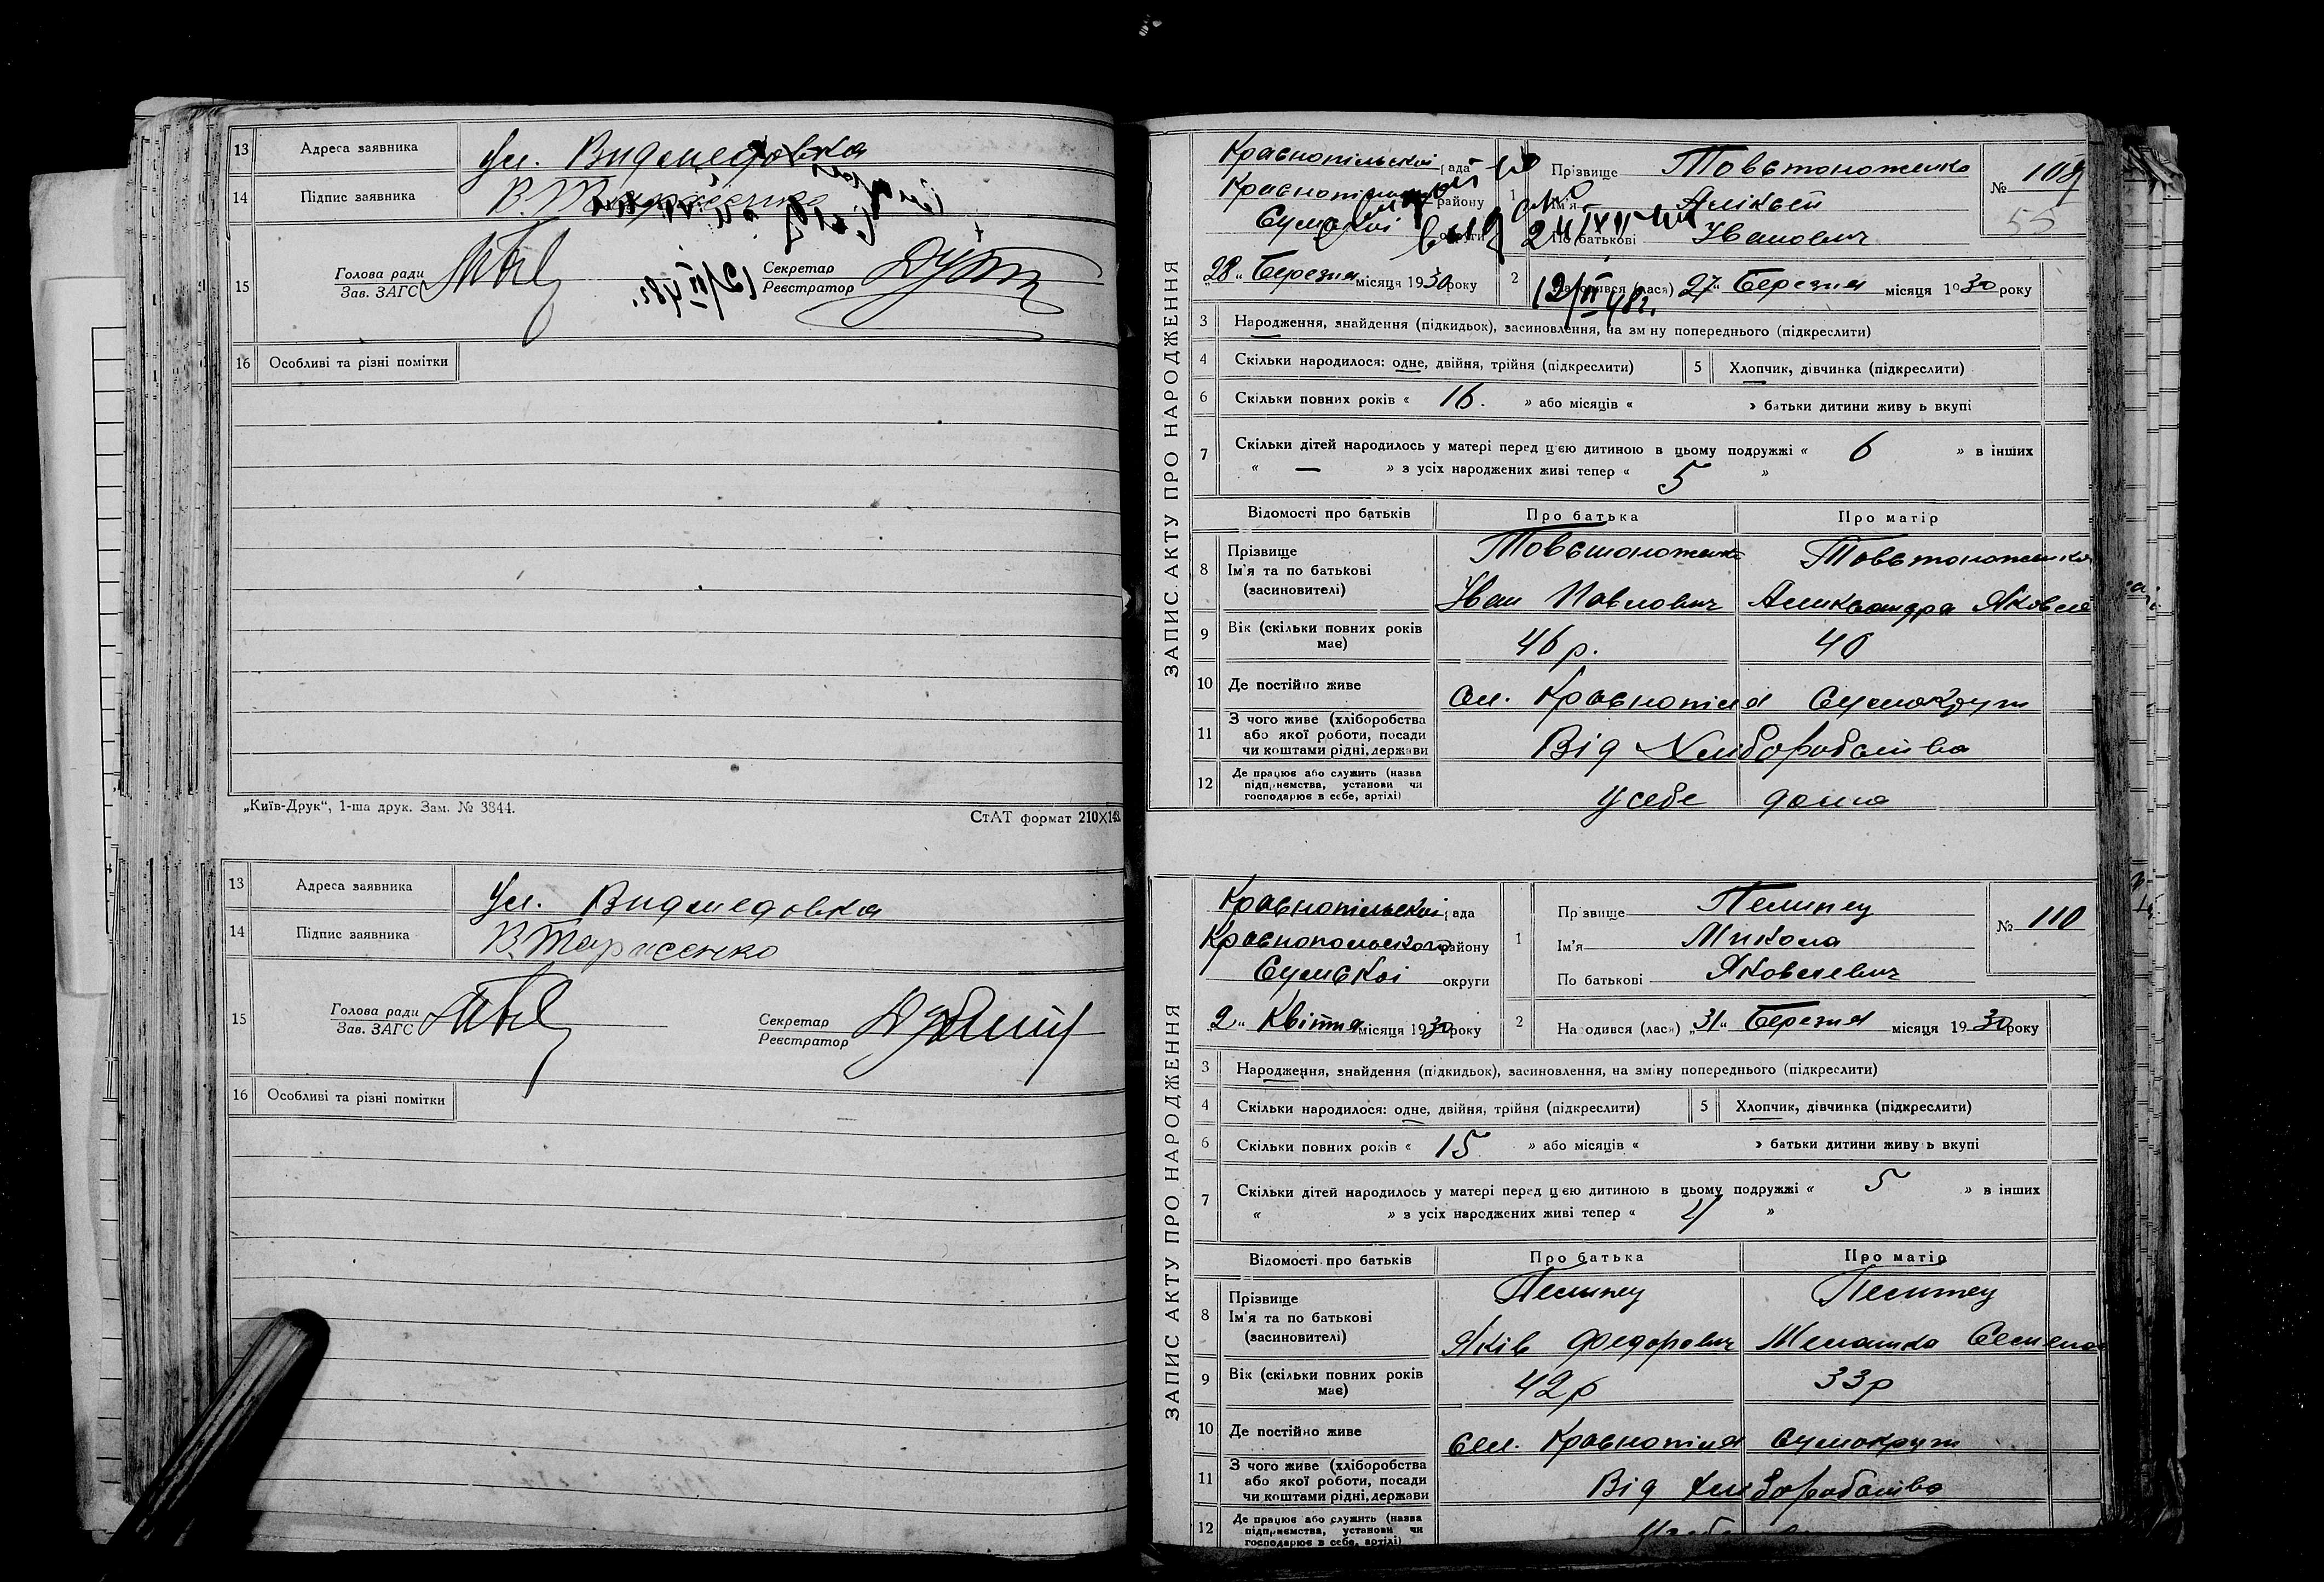 13 Адреса заявника Ул. Видмедовка
14 Підпис заявника В. Тарасенко
15 Голова ради
Зав. ЗАГС
Секретар
Реєстратор
12/VI 48г.
16 Особливі та різні помітки
„Київ-Друк“, 1-ша друк. Зам. № 3844.
СтАТ формат 210×148
13 Адреса заявника Ул. Видмедовка
14 Підпис заявника В. Тарасенко
15 Голова ради
Зав. ЗАГС
Секретар
Реєстратор
16 Особливі та різні помітки
ЗАПИС АКТУ ПРО НАРОДЖЕННЯ
Краснопільської рада
района
Сумської округи
28 „ Березня місяця 1930 року
1 Прізвище Товстоноженко
Ім'я Аліксей
По батькові Іванович
№ 109
55
12/VI 48г.
2 Народився (лася) 27 „ Березня місяця 1930 року
3 Народження, знайдення (підкидьок), засиновлення, на зміну попереднього (підкреслити)
4 Скільки народилося: одне, двійня, трійня (підкреслити) 5 Хлопчик, дівчинка (підкреслити)
6 Скільки повних років « 16. » або місяців « » батьки дитини живуть вкупі
7 Скільки дітей народилось у матері перед цією дитиною в цьому подружжі « 6 » в інших
« — » з усіх народжених живі тепер « 5 »
Відомості про батьків Про батька Про матір
8 Прізвище
Ім'я та по батькові
(засиновителі)
Товстоноженко Товстоноженко
Іван Павлович Александра Яковле
9 Вік (скільки повних років має) 46 р. 40
10 Де постійно живе Сл. Краснопілля Сумокруг
11 З чого живе (хліборобства
або якої роботи, посади
чи коштами рідні, держави
Від Хліборобства
12 Де працює або служить (назва
підприємства, установи чи
господарює в себе, артілі)
У себе дома
ЗАПИС АКТУ ПРО НАРОДЖЕННЯ
Краснопільської рада
Краснопольского району
Сумської округи
2 „ Квітня місяця 1930 року
1 Прізвище Пелипец
Ім'я Микола
По батькові Яковлевич
№ 110
2 Народився (лася) „31“ Березня місяця 1930 року
3 Народження, знайдення (підкидьок), засиновлення, на зміну попереднього (підкреслити)
4 Скільки народилося: одне, двійня, трійня (підкреслити) 5 Хлопчик, дівчинка (підкреслити)
6 Скільки повних років « 15 » або місяців « » батьки дитини живуть вкупі
7 Скільки дітей народилось у матері перед цією дитиною в цьому подружжі « 5 » в інших
« » з усіх народжених живі тепер « 4 »
Відомості про батьків Про батька Про матір
8 Прізвище
Ім'я та по батькові
(засиновителі)
Пелипец Пелипец
Яків Федорович Меланка Семено
9 Вік (скільки повних років має) 42 р 33 р
10 Де постійно живе Сел. Краснопілля Сумокруг
11 З чого живе (хліборобства
або якої роботи, посади
чи коштами рідні, держави
Від хліборобства
12 Де працює або служить (назва
підприємства, установи чи
господарює в себе, артілі)